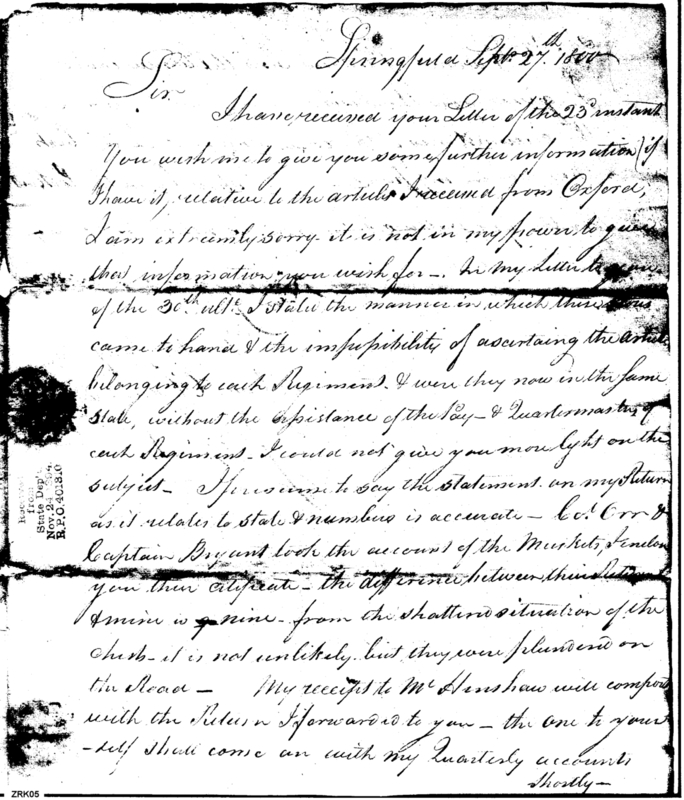 Springfield Sept. 27th 1800
Sir
I have received your Letter of the 23d instant
You wish me to give you some further information (if
I have it, relative to the articles I received from Oxford,
I am extreamly sorry it is not in my power to give
that information you wish for — In my Letter to you
of the 30th ult. I stated the manner in which these
came to hand & the impossibility of ascertaing the articles
belonging to each Regiment & were they now in the same
State, without the assistance of the Pay & Quartermaster of
each Regiment I could not give you more light on the
subject — I presume to say the statement on my Return
as it relates to state & numbers is accurate — Col. Orr &
Captain Bryant took the account of the Muskets, I enclose
you their certificate — the difference between their Return
& mine is nine — from the shattered situation of the
Chests — it is not unlikely but they were plundered on
the Road — My receipt to Mr Henshaw will comport
with the Return I forwarded to you — the one to your
-self shall come on with my Quarterly accounts
shortly —
Received
from
State Dept.
Nov. 24
R.P.O. 401310
ZRK05